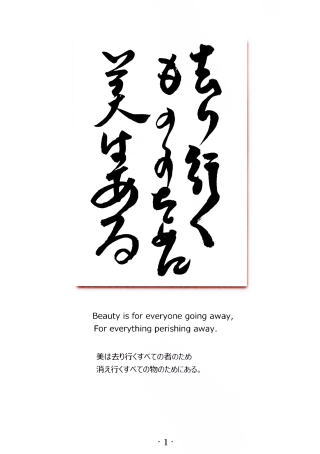 去り行く
ものの為に
美はある
Beauty is for everyone going away,
For everything perishing away.
美は去り行くすべての者のため
消え行くすべての物のためにある。
- 1 -